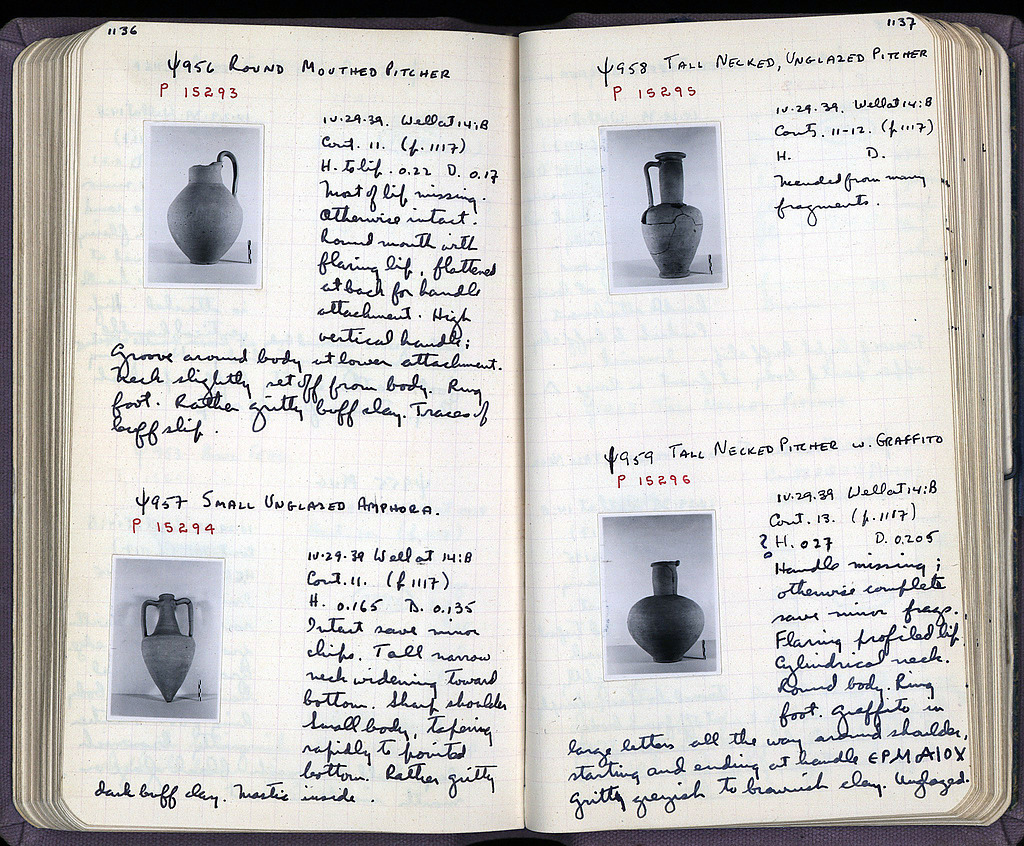 1136
Ψ956 ROUND MOUTHED PITCHER
P 15293
IV.29.39. Well at 14:B
Cont. 11. (p. 1117)
H. to lip. 0.22 D. 0.17
Most of lip missing.
Otherwise intact.
Round mouth with
flaring lip, flattened
at back for handle
attachment. High
vertical handle;
Groove around body at lower attachment.
Neck slightly set off from body. Ring
foot. Rather gritty buff clay. Traces of
buff slip.
Ψ957 SMALL UNGLAZED AMPHORA.
P 15294
IV.29.39 Well at 14:B
Cont. 11. (p 1117)
H. 0.165 D. 0.135
Intact save minor
chips. Tall narrow
neck widening toward
bottom. Sharp shoulder
Small body, tapering
rapidly to pointed
bottom. Rather gritty
dark buff clay. Mastic inside.
1137
Ψ958 TALL NECKED, UNGLAZED PITCHER
P 15295
IV.29.39. Well at 14:B
Conts. 11-12. (p 1117)
H. D.
Mended from many
fragments.
Ψ959 TALL NECKED PITCHER W. GRAFFITO
P 15296
IV.29.39 Well at 14:B
Cont. 13. (p. 1117)
? H. 027 D. 0.205
Handle missing;
otherwise complete
save minor frags.
Flaring profiled lip.
Cylindrical neck.
Round body. Ring
foot. Graffito in
large letters all the way around shoulder,
starting and ending at handle
Gritty greyish to brownish clay. Unglazed.